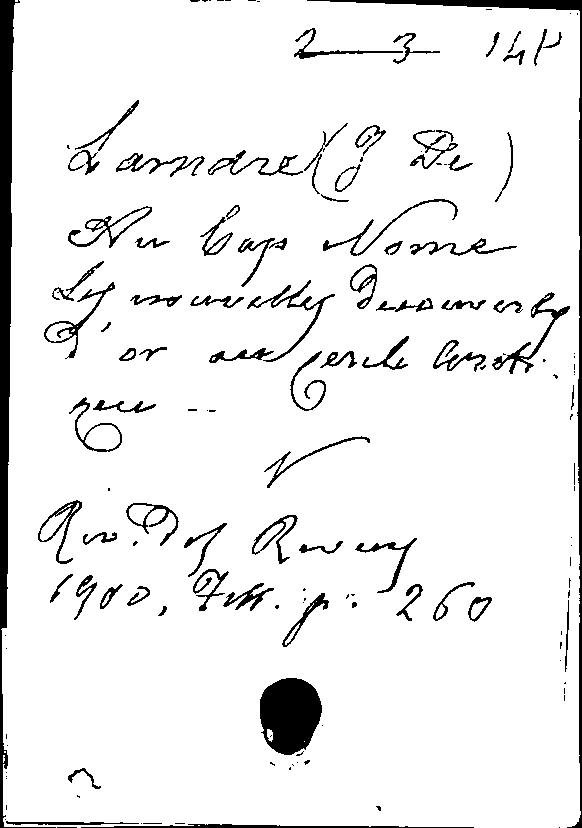 2 3 141
Lamare (J De)
Au Cap Nome
Les nouvelles Découvertes
D'or au cercle Arcti
que --
Rev. Des Revues
1900, p. 260